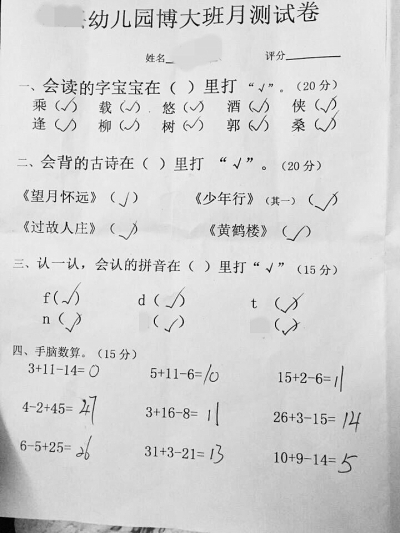 幼儿园博大班月测试卷
姓名 评分
一、会读的字宝宝在（ ）里打“√”。（20分）
乘（✓） 载（✓） 悠（✓） 酒（✓） 侠（✓）
逢（✓） 柳（✓） 树（✓） 郭（✓） 桑（✓）
二、会背的古诗在（ ）里打 “√”。（20分）
《望月怀远》（✓） 《少年行》（其一）（✓）
《过故人庄》（✓） 《黄鹤楼》（✓）
三、认一认，会认的拼音在（ ）里打“√”（15分）
f（✓） d（✓） t（✓）
n（✓） （✓） （✓）
四、手脑数算。（15分）
3+11-14=0 5+11-6=10 15+2-6=11
4-2+45=47 3+16-8=11 26+3-15=14
6-5+25=26 31+3-21=13 10+9-14=5